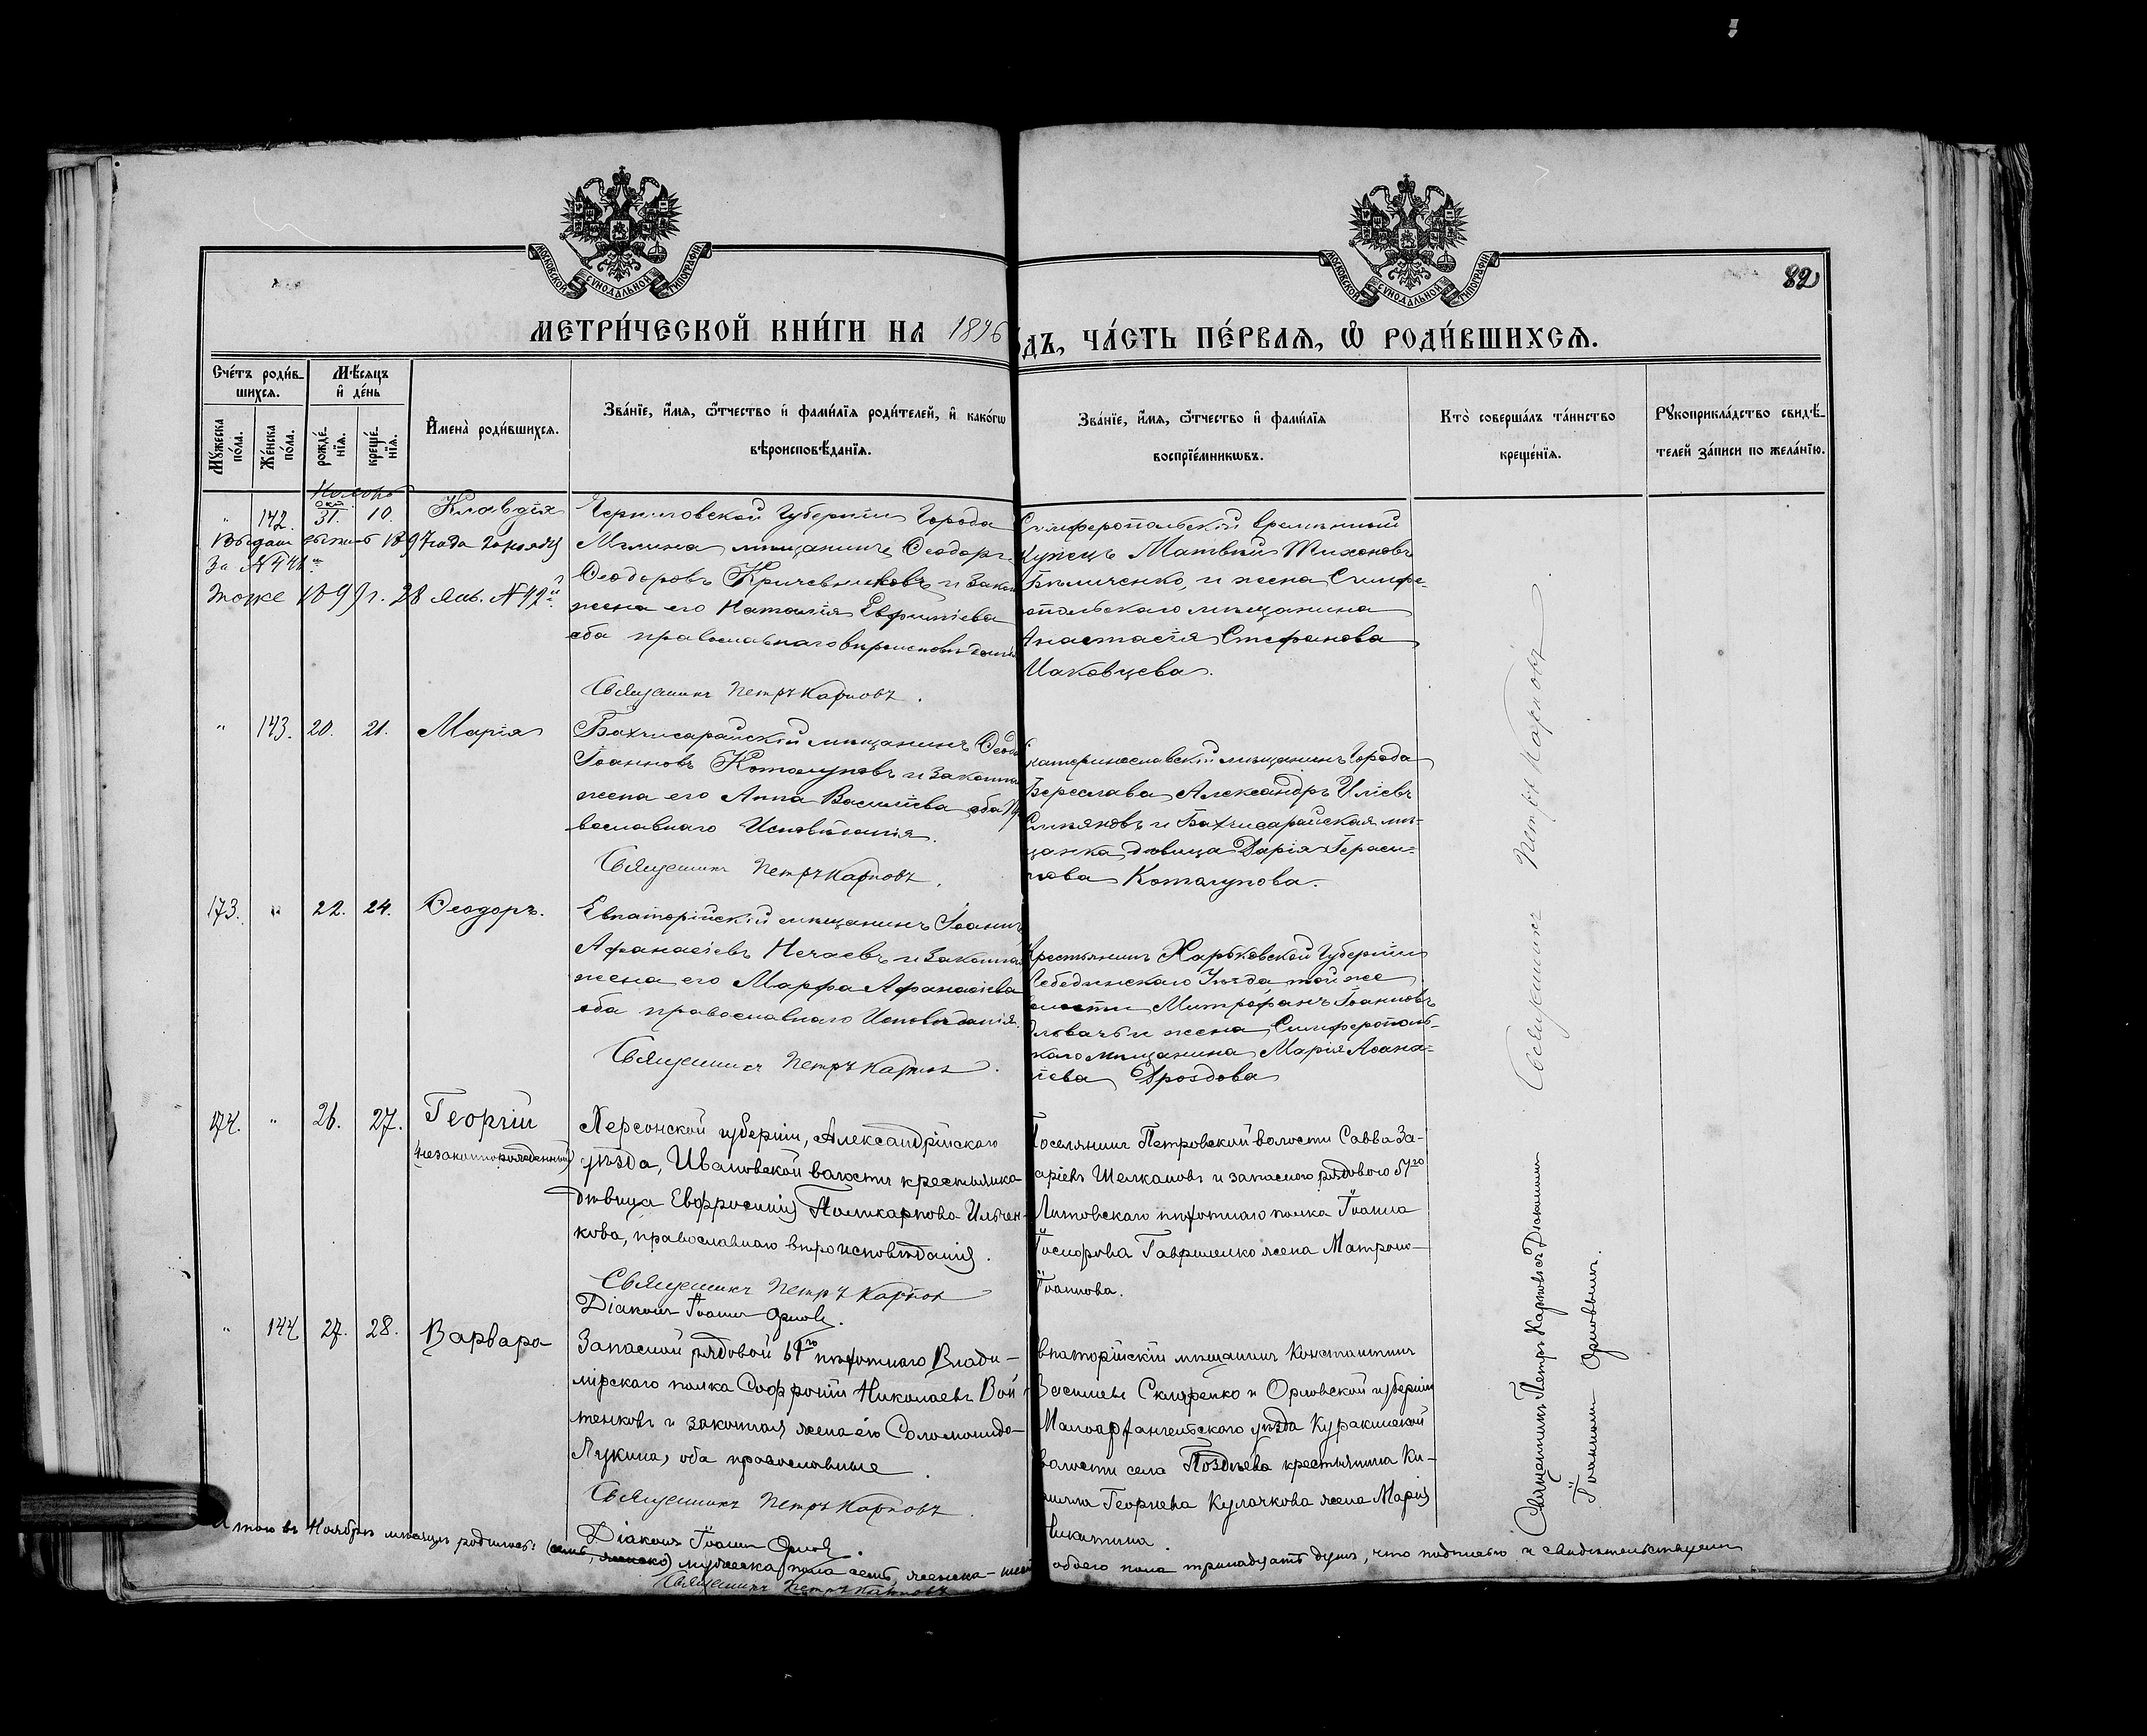 МОСКОВСКОЙ СѴНОДАЛЬНОЙ ТИПОГРАФІИ
МОСКОВСКОЙ СѴНОДАЛЬНОЙ ТИПОГРАФІИ
82
МЕТРИ́ЧЕСКОЙ КНИ́ГИ НА 1896
ДЪ, ЧА́СТЬ ПЕ́РВАЯ, Ѡ РОДИ́ВШИХСЯ.
Сче́тъ роди́в-
шихся.
Мѣ́сяцъ
и де́нь
Мꙋ́жеска по́ла.
Же́нска по́ла.
рожде́-
нїя.
креще́-
нїя.
И҆мена̀ роди́вшихся.
Зва́нїе, и҆́мя, ѻ҆́тчество и҆ фами́лїя роди́телей, и҆ како́гѡ
вѣроисповѣ́данїя.
Зва́нїе, и҆́мя, ѻ҆́тчество и҆ фами́лїя
воспрїе́мникѡвъ.
Кто̀ соверша́лъ та́инство
креще́нїя.
Рꙋкоприкла́дство свидѣ́-
телей за́писи по жела́нїю.
Ноябрь
окт.
142. 31. 10. Клавдія
1897 года
тоже 1899 г. 28 янв.
Черниговской Губерніи Города
Мглина мѣщанинъ Ѳеодоръ
Ѳеодоровъ и закон
жена его Наталія Евфиміева
оба православнаго вѣроисповѣданія
Священникъ Петръ Карповъ.
Симферопольскій временный
Купецъ Матвѣй Тихоновъ
Бѣличенко, и жена Симфе-
опольскаго мѣщанина
Анастасія Стефанова
Иаковцева.
" 143. 20. 21. Марія
Бахчисарайскій мѣщанинъ Ѳеодо
Іоанновъ Котолуповъ и законна
жена его Анна Василіева оба пр
вославнаго Исповѣданія.
Священникъ Петръ Карповъ.
катеринославскій мѣщанинъ Города
Береслава Александръ Иліевъ
и Бахчисарайская мѣ-
щанка дѣвица Дарія Гераси-
мова Котолупова.
173. " 22. 24. Ѳеодоръ.
Евпаторійскій мѣщанинъ Іоаннъ
Афанасіевъ Нечаевъ и законная
жена его Марфа Афанасіева
оба православнаго Исповѣданія.
Священникъ Петръ Карповъ.
Крестьянинъ Харьковской Губерніи
Лебединскаго Уѣзда той же
волости Митрофанъ Іоанновъ
и жена Симферополь-
скаго мѣщанина Марія Аѳана-
сіева Дроздова
174. " 26. 27. Георгій
(незаконнорожденный)
Херсонской губерніи, Александрійскаго
уѣзда, Ивановской волости крестьянка
дѣвица Евфросинія Поликарпова Ильчен-
кова, православнаго вѣроисповѣданія.
Священникъ Петръ Карповъ
Діаконъ Іоаннъ Орловъ.
Поселянинъ Петровской волости Савва За-
харіевъ Шелкановъ и запаснаго рядового 51го
Литовскаго пѣхотнаго полка Іоанна
Гавриленко жена Матрона
Іоаннова.
" 144 27. 28. Варвара
Запасной рядовой 61го пѣхотнаго Влади-
мірскаго полка Софроній Николаевъ Вой
тенковъ и законная жена его Соломонида
Лукина, оба православные.
Священникъ Петръ Карповъ.
Діаконъ Іоаннъ Орловъ.
впаторійскій мѣщанинъ Константинъ
Васильевъ Скляренко и Орловской губерніи
Малоархангельскаго уѣзда Куракинской
волости села Позднѣева крестьянина Ки-
рилла Георгіева Кулачкова жена Марія
Никитина.
Священникъ Петръ Карповъ
Священникъ Петръ Карповъ съ Діакономъ
Іоанномъ Орловымъ.
Итого въ Ноябрѣ мѣсяцѣ родилось: мужеска пола семь, женска - шест
обоего пола тринадцать душъ, что подписью и свидѣтельствуемъ
Священникъ Петръ Карповъ